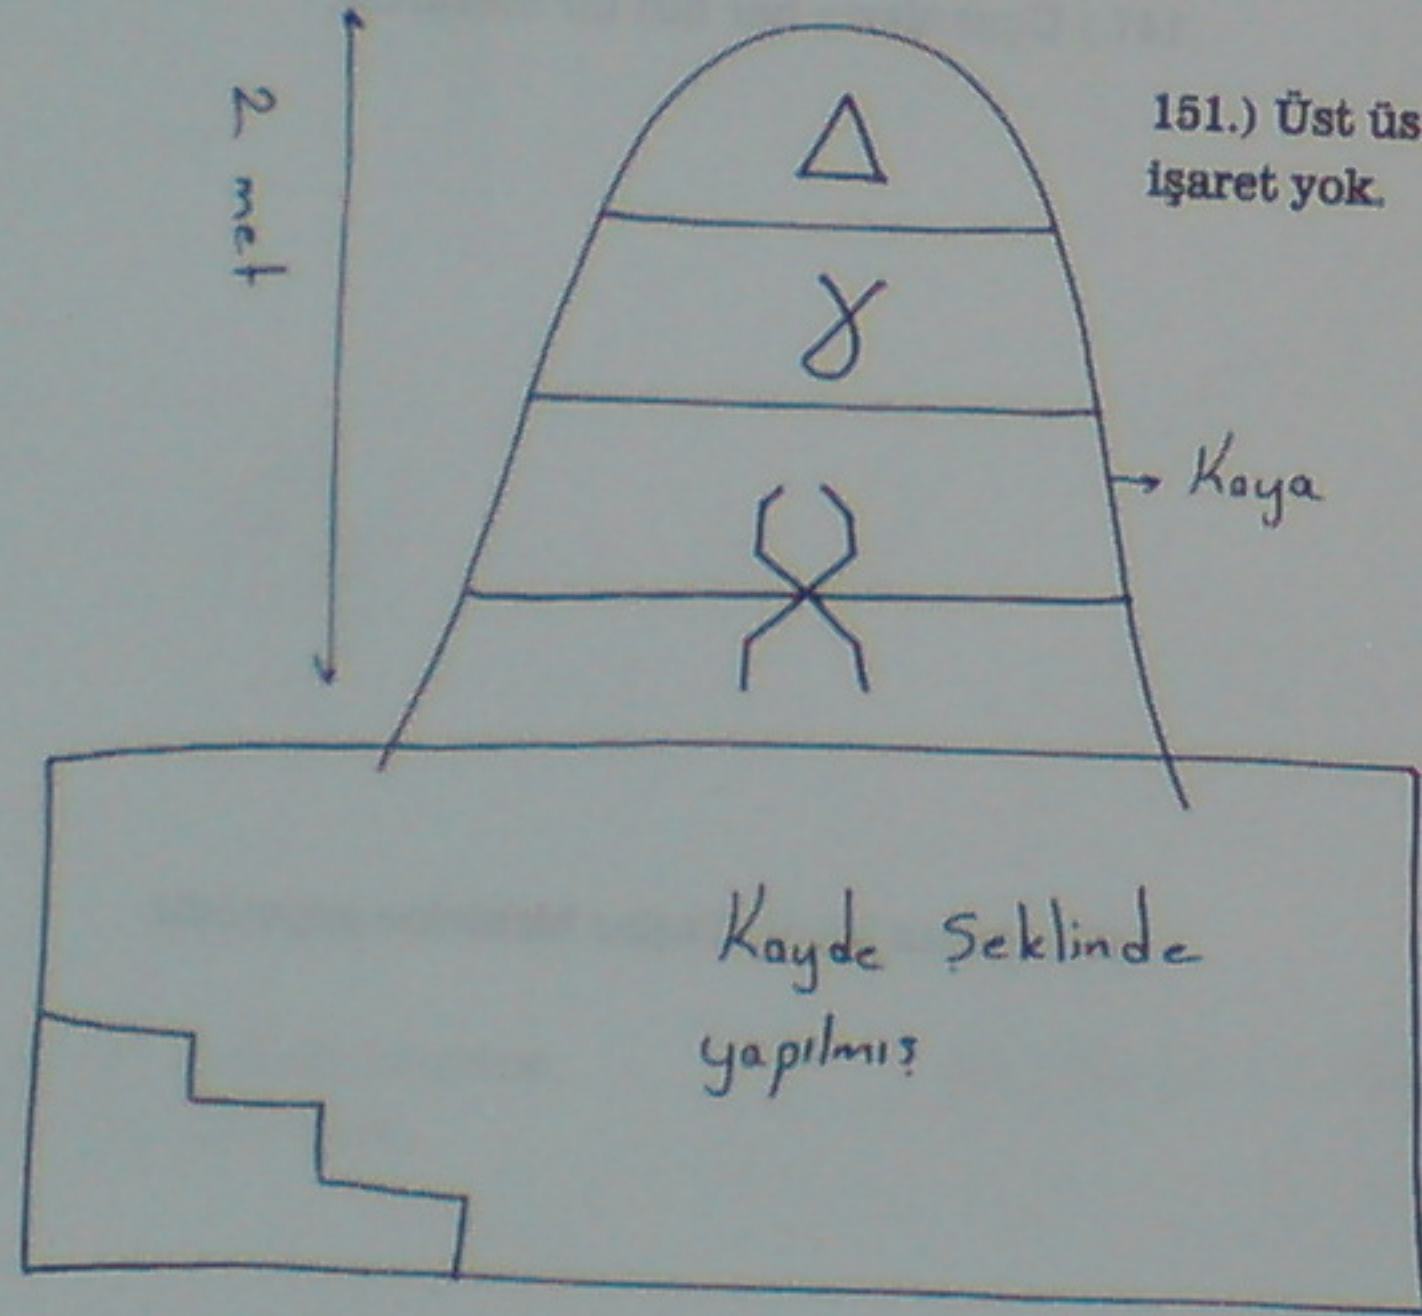 2 met
151.) Üst üs
işaret yok.
Δ
γ
→ Kaya
Kayde Şeklinde
yapılmış